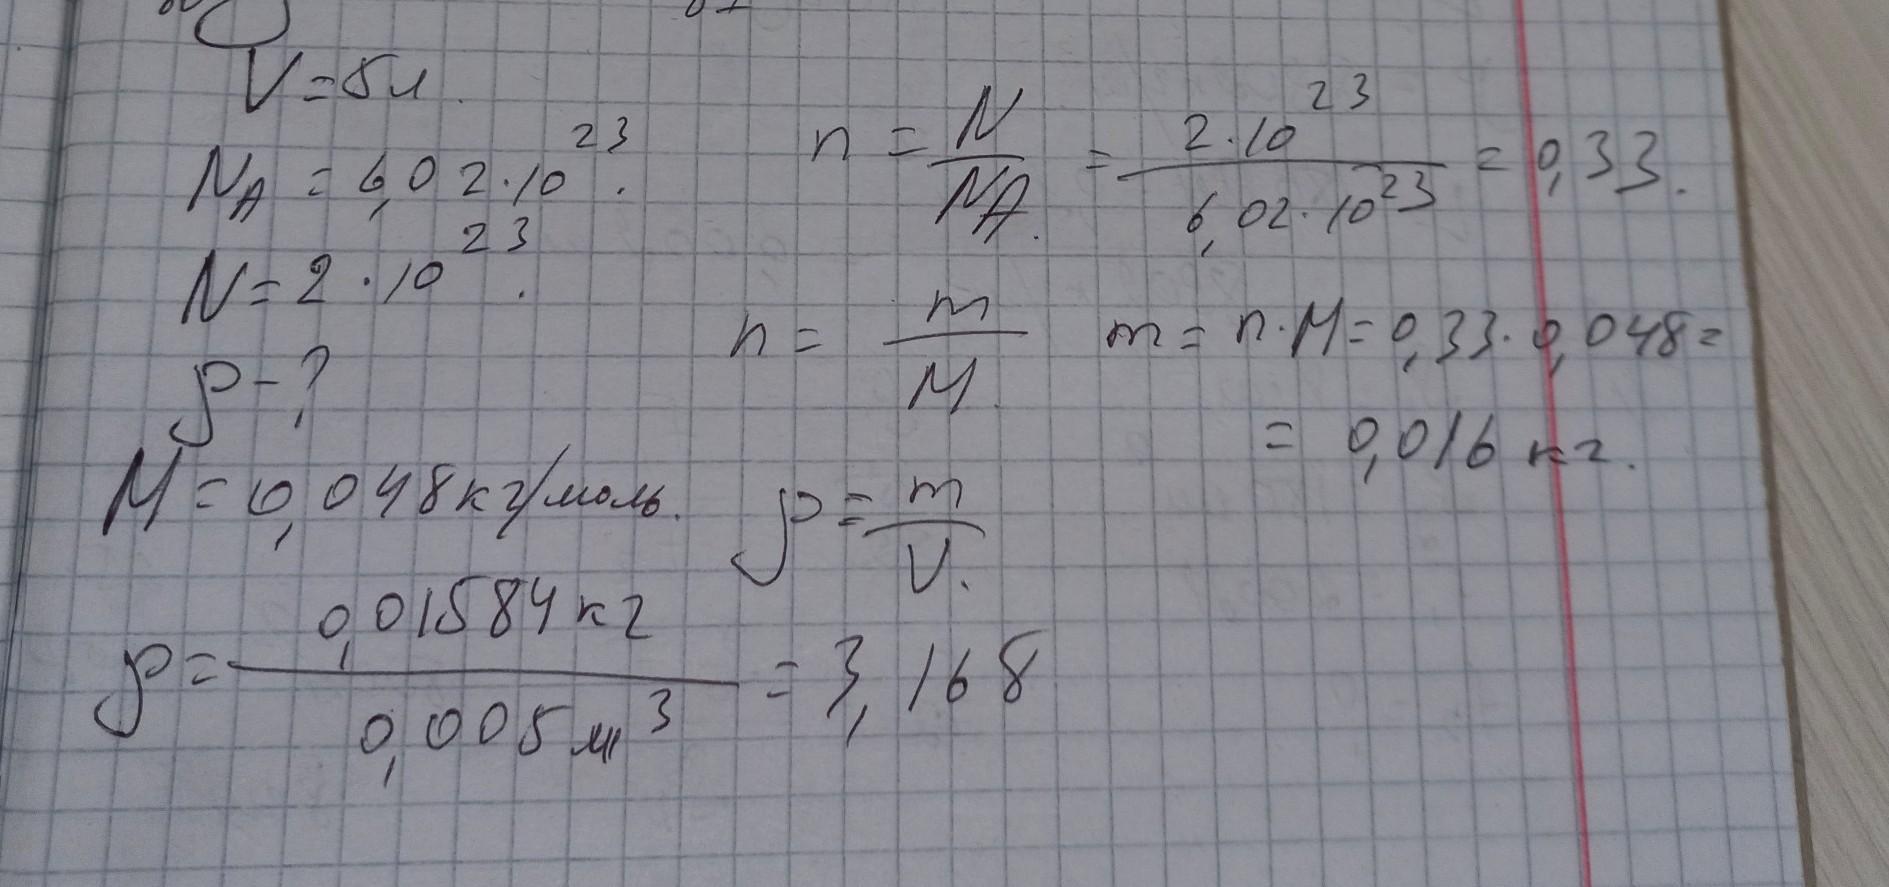 V = 5л.
N_A = 6,02 · 10^23.
N = 2 · 10^23.
ρ - ?
M = 0,048 кг/моль.
n = N/N_A. = 2 · 10^23 / 6,02 · 10^23 = 0,33.
n = m/M. m = n · M = 0,33 · 0,048 =
= 0,016 кг.
ρ = m/V.
ρ = 0,01584 кг / 0,005 м^3 = 3,168